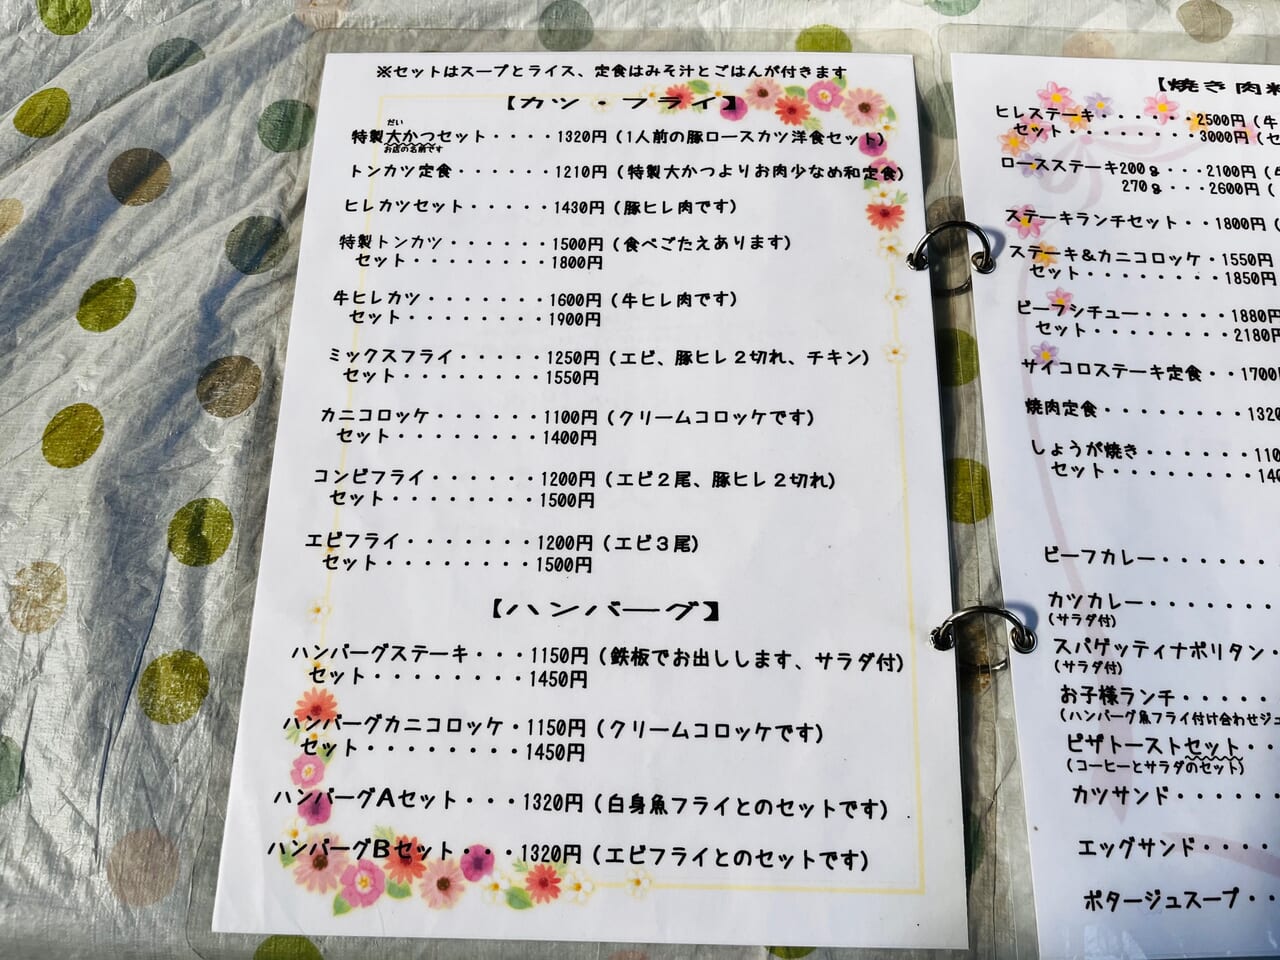 ※セットはスープとライス、定食はみそ汁とごはんが付きます
【カツ・フライ】
だい
特製大かつセット・・・・1320円(1人前の豚ロースカツ洋食セット)
お店の名前です
トンカツ定食・・・・・・1210円(特製大かつよりお肉少なめ和定食)
ヒレカツセット・・・・・1430円(豚ヒレ肉です)
特製トンカツ・・・・・・1500円(食べごたえあります)
セット・・・・・・・・1800円
牛ヒレカツ・・・・・・・1600円(牛ヒレ肉です)
セット・・・・・・・・1900円
ミックスフライ・・・・・1250円(エビ、豚ヒレ2切れ、チキン)
セット・・・・・・・・1550円
カニコロッケ・・・・・・1100円(クリームコロッケです)
セット・・・・・・・・1400円
コンビフライ・・・・・・1200円(エビ2尾、豚ヒレ2切れ)
セット・・・・・・・・1500円
エビフライ・・・・・・・1200円(エビ3尾)
セット・・・・・・・・1500円
【ハンバーグ】
ハンバーグステーキ・・・1150円(鉄板でお出しします、サラダ付)
セット・・・・・・・・1450円
ハンバーグカニコロッケ・1150円(クリームコロッケです)
セット・・・・・・・・1450円
ハンバーグAセット・・・1320円(白身魚フライとのセットです)
ハンバーグBセット・・・1320円(エビフライとのセットです)
【焼き肉料
ヒレステーキ・・・・・・2500円(牛
セット・・・・・・・・3000円(セ
ロースステーキ200g・・・2100円(牛
270g・・・2600円(
ステーキランチセット・・1800円(
ステーキ&カニコロッケ・1550円
セット・・・・・・・・1850円
ビーフシチュー・・・・・1880円
セット・・・・・・・・2180円
サイコロステーキ定食・・1700円
焼肉定食・・・・・・・・1320
しょうが焼き・・・・・・110
セット・・・・・・・・140
ビーフカレー・・・・・・
カツカレー・・・・・・・
(サラダ付)
スパゲッティナポリタン・・
(サラダ付)
お子様ランチ・・・・・・
(ハンバーグ魚フライ付け合わせジュ
ピザトーストセット・・
(コーヒーとサラダのセット)
カツサンド・・・・・・
エッグサンド・・・・・
ポタージュスープ・・・